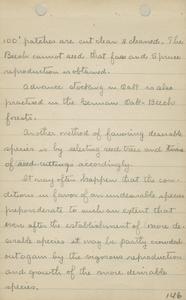 100' patches are cut clear & cleaned. The
Beech cannot seed that far and Spruce
reproduction is obtained.
Advance stocking in Oak is also
practised in the German Oak-Beech
forests.
Another method of favoring desirable
species is by selecting seed trees and time
of seed cuttings accordingly.
It may often happen that the con-
ditions in favor of an undesirable species
preponderate to such an extent that
even after the establishment of more de-
sirable species it may be partly crowded
out again by the vigorous reproduction
and growth of the more desirable
species.
146